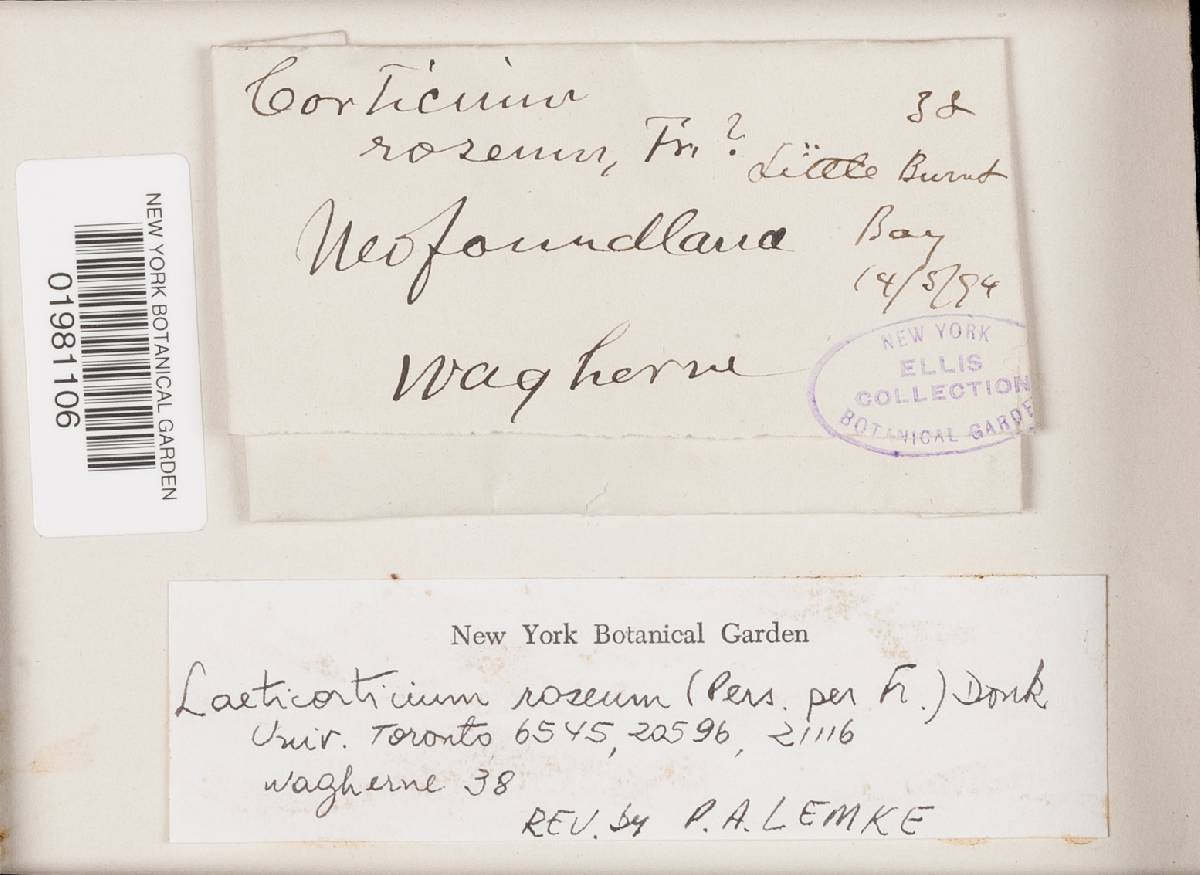 Corticium
roseum, Fr.?
Newfoundland
Wagherne
38
Little Burnt
Bay
14/5/94
NEW YORK
ELLIS
COLLECTION
BOTANICAL GARDE
NEW YORK BOTANICAL GARDEN
01981106
New York Botanical Garden
Laeticorticium roseum (Pers. per Fr.) Donk
Univ. Toronto 6545, 20596, 21116
Wagherne 38
REV. by P.A. LEMKE